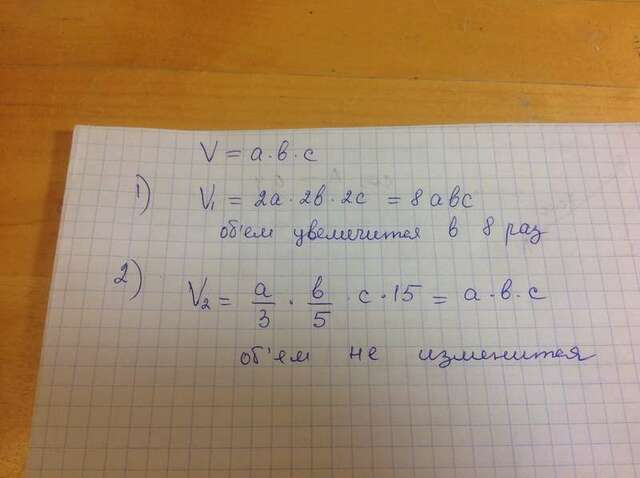 V = a · b · c
1) V₁ = 2a · 2b · 2c = 8abc
об'ем увеличится в 8 раз
2) V₂ = a/3 · b/5 · c · 15 = a · b · c
об'ем не изменится